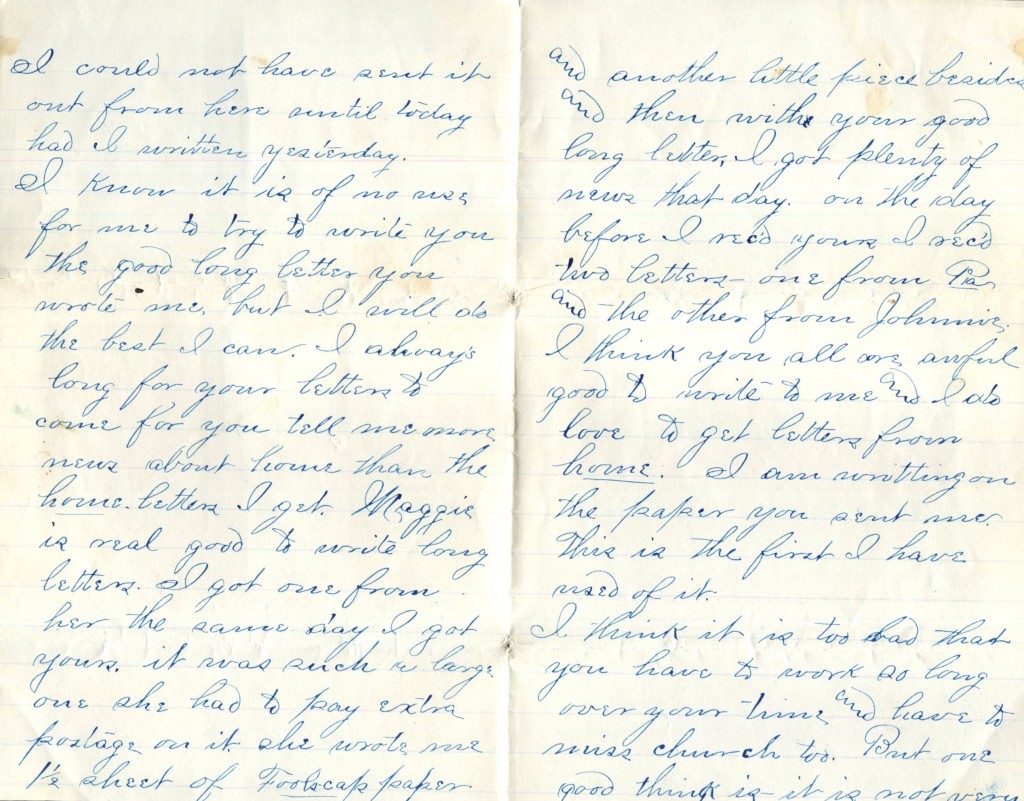 I could not have sent it
out from here until today
had I written yesterday.
I know it is of no use
for me to try to write you
the good long letter you
wrote me, but I will do
the best I can. I always
long for your letters to
come for you tell me more
news about home than the
home letters I get. Maggie
is real good to write long
letters. I got one from
her the same day I got
yours. it was such a large
one she had to pay extra
postage on it. she wrote me
1½ sheet of Foolscap paper
and another little piece besides
and then with your good
long letter, I got plenty of
news that day. on the day
before I rec'd yours I rec'd
two letters - one from Pa
and the other from Johnnie.
I think you all are awful
good to write to me and I do
love to get letters from
home. I am writting on
the paper you sent me.
This is the first I have
used of it.
I think it is too bad that
you have to work so long
over your time and have to
miss church too. But one
good think is - it is not very